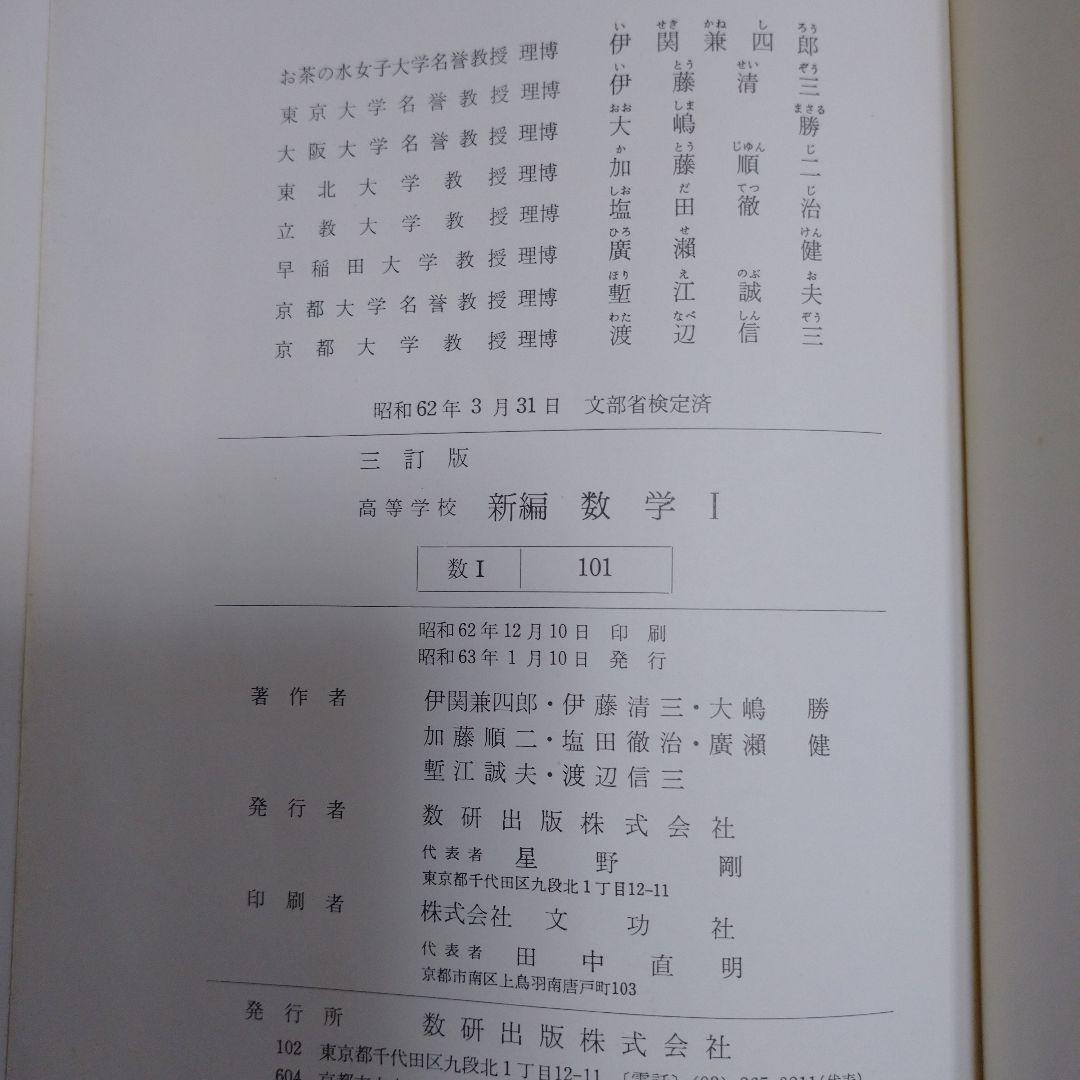 お茶の水女子大学名誉教授 理博 伊関兼四郎
いせきかねしろう
東京大学名誉教授 理博 伊藤清三
いとうせいぞう
大阪大学名誉教授 理博 大嶋勝
おおしままさる
東北大学教授 理博 加藤順二
かとうじゅんじ
立教大学教授 理博 塩田徹治
しおだてつじ
早稲田大学教授 理博 廣瀬健
ひろせけん
京都大学名誉教授 理博 塹江誠夫
ほりえのぶお
京都大学教授 理博 渡辺信三
わたなべしんぞう
昭和62年3月31日 文部省検定済
三訂版
高等学校 新編 数学 Ⅰ
数Ⅰ 101
昭和62年12月10日 印刷
昭和63年1月10日 発行
著作者 伊関兼四郎・伊藤清三・大嶋勝
加藤順二・塩田徹治・廣瀬健
塹江誠夫・渡辺信三
発行者 数研出版株式会社
代表者 星野剛
東京都千代田区九段北1丁目12-11
印刷者 株式会社 文功社
代表者 田中直明
京都市南区上鳥羽南唐戸町103
発行所 数研出版株式会社
102 東京都千代田区九段北1丁目12-11
604